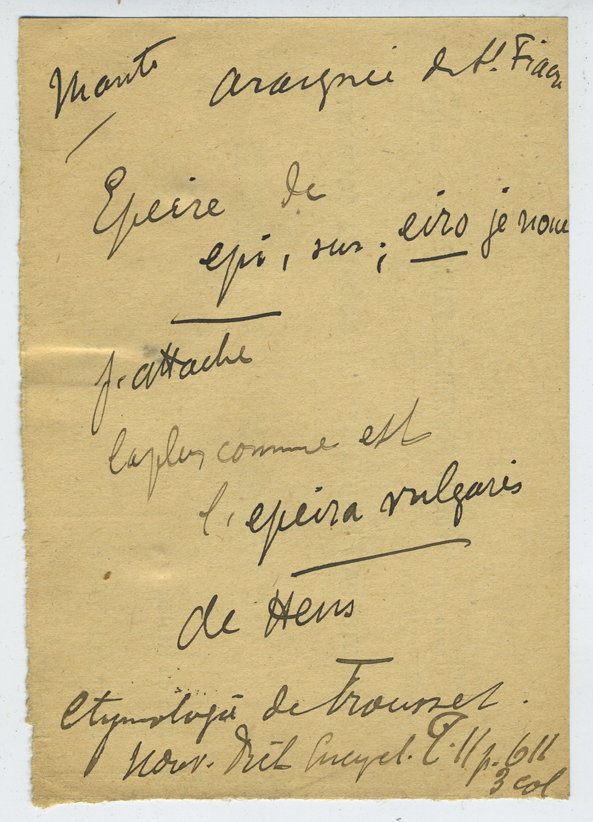 Mante araignée de St. Fiacre
Epeire de
epi, sur ; eiro je noue
j'attache
la plus connue est
l'epeira vulgaris
de Hens
Etymologie de Trousset.
Nouv. Dict Encycl. T. II p. 611
3 col